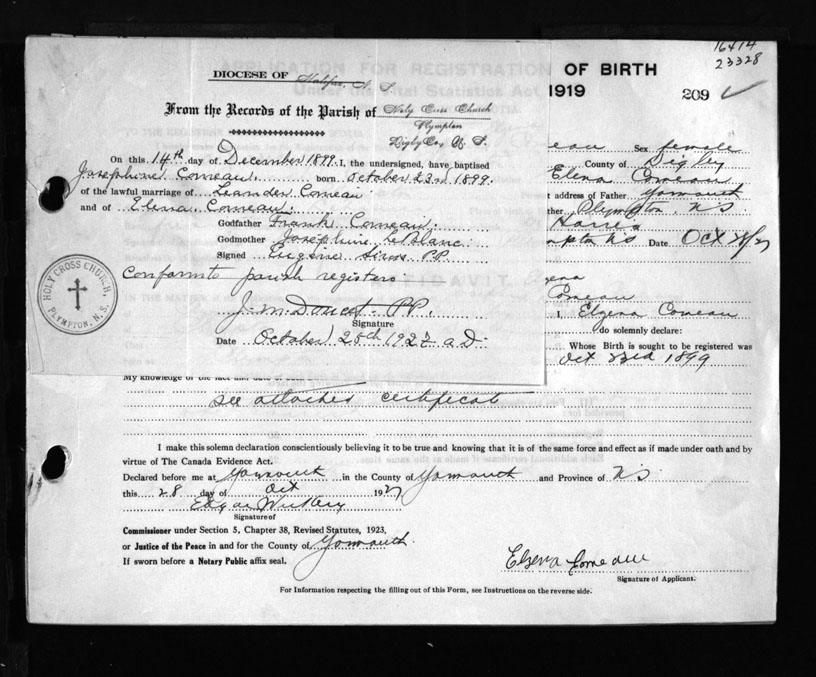 16414
23328
209
APPLICATION FOR REGISTRATION OF BIRTH
Under the Vital Statistics Act, 1919
DIOCESE OF Halifax N. S.
From the Records of the Parish of Holy Cross Church
Plympton
Digby Co, N. S.
On this 14th day of December 1899. I, the undersigned, have baptised
Josephine Comeau. born October 23rd 1899.
of the lawful marriage of Leander Comeau
and of Elena Comeau.
Godfather Frank Comeau.
Godmother Josephine LeBlanc.
Signed Eugene P.P.
Conform to parish registers
HOLY CROSS CHURCH,
PLYMPTON, N.S.
J. M. Doucet. P.P.
Signature
Date October 25th 1927 A.D.
Comeau Sex female
County of Digby
Elena Comeau
t address of Father Yarmouth
ther Plympton, N.S
Date Oct
Comeau
I, Elzena Comeau
do solemnly declare:
Whose Birth is sought to be registered was
Oct 23rd 1899
My knowledge of the fact and date of
see attached certificate
I make this solemn declaration conscientiously believing it to be true and knowing that it is of the same force and effect as if made under oath and by
virtue of The Canada Evidence Act.
Declared before me at Yarmouth in the County of Yarmouth and Province of N S
this 28 day of Oct 1927
Edgar
Signature of
Commissioner under Section 5, Chapter 38, Revised Statutes, 1923,
or Justice of the Peace in and for the County of Yarmouth.
If sworn before a Notary Public affix seal.
Elzena Comeau
Signature of Applicant.
For Information respecting the filling out of this Form, see Instructions on the reverse side.